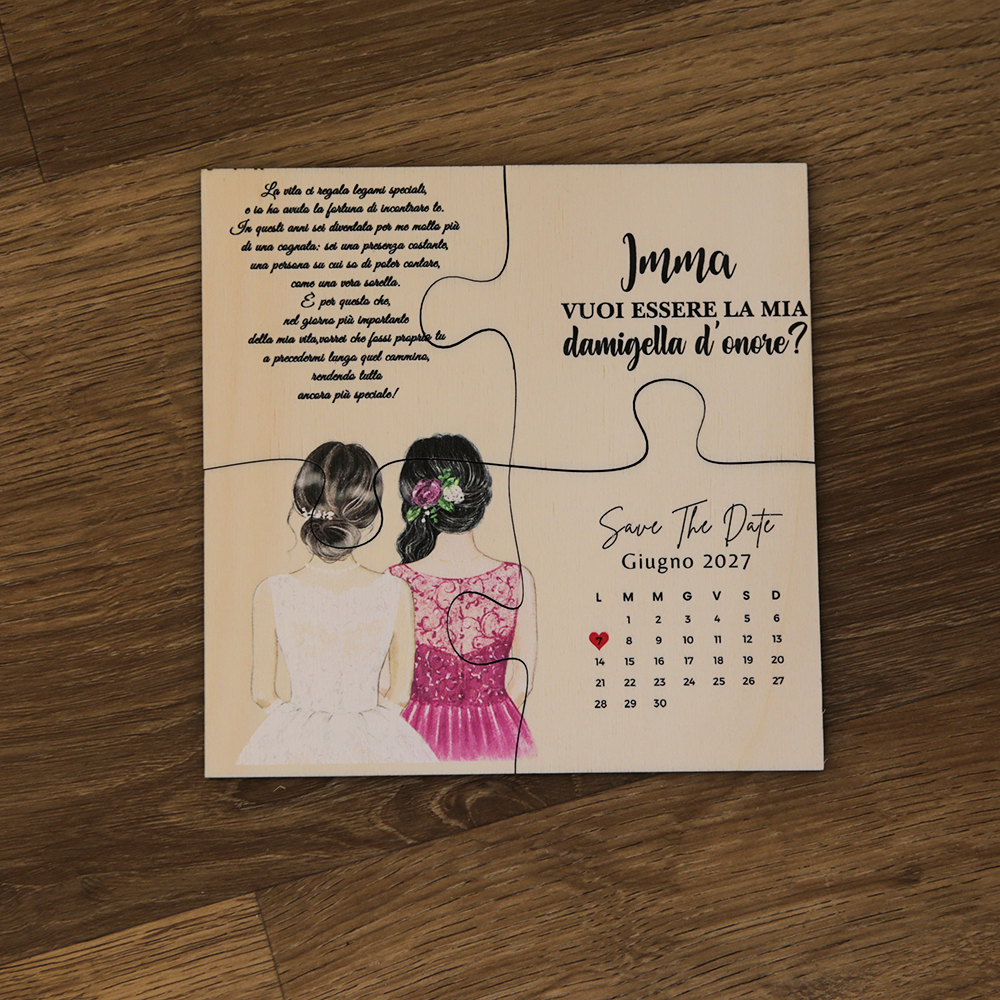 La vita ci regala legami speciali,
e io ho avuto la fortuna di incontrare te.
In questi anni sei diventata per me molto più
di una cognata: sei una presenza costante,
una persona su cui so di poter contare,
come una vera sorella.
È per questo che,
nel giorno più importante
della mia vita,vorrei che fossi proprio tu
a precedermi lungo quel cammino,
rendendo tutto
ancora più speciale!
Imma
VUOI ESSERE LA MIA
damigella d'onore?
Save The Date
Giugno 2027
L M M G V S D
1 2 3 4 5 6
7 8 9 10 11 12 13
14 15 16 17 18 19 20
21 22 23 24 25 26 27
28 29 30